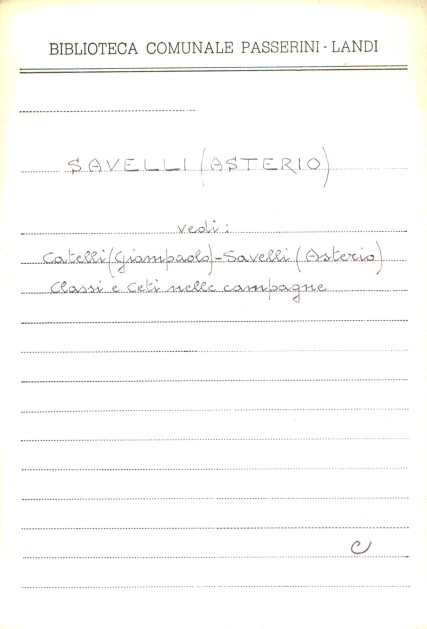 BIBLIOTECA COMUNALE PASSERINI-LANDI
SAVELLI (ASTERIO)
vedi:
Catelli (Giampaolo)-Savelli (Asterio)
Classi e Ceti nelle campagne
C